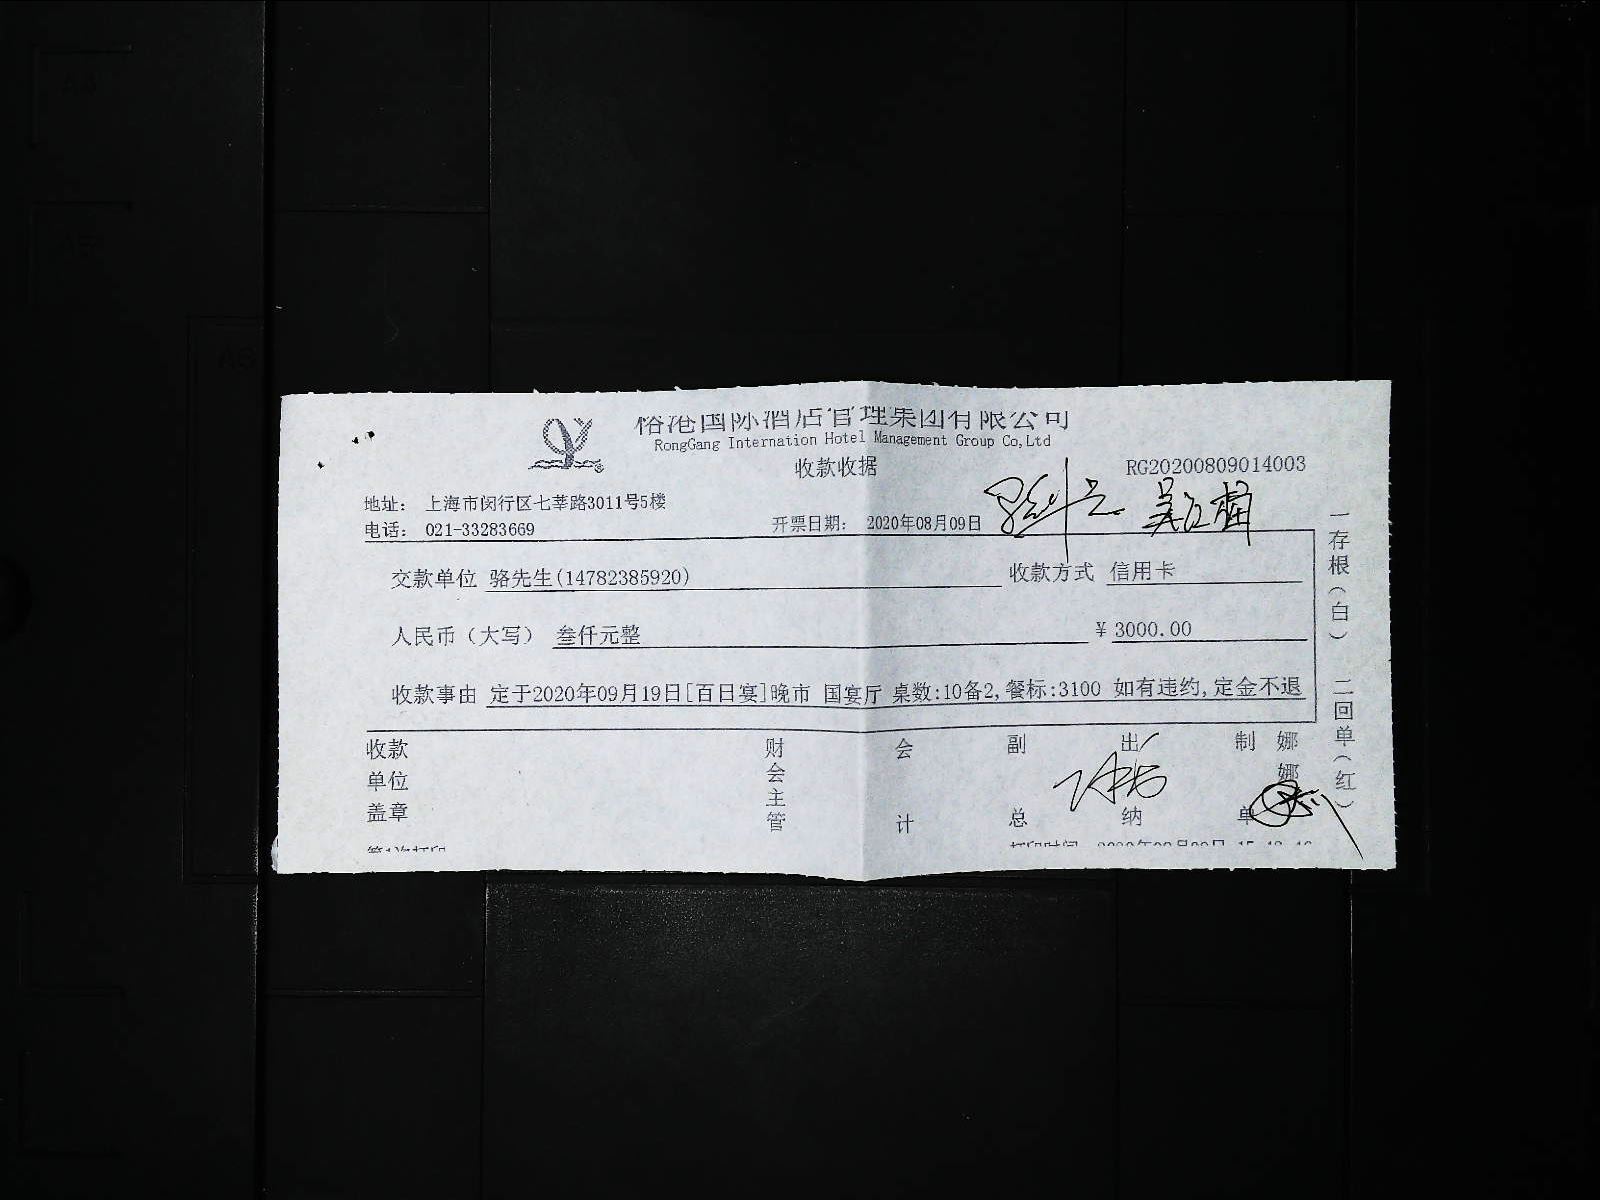 裕港国际酒店管理集团有限公司
RongGang Internation Hotel Management Group Co,Ltd
收款收据
RG20200809014003
地址： 上海市闵行区七莘路3011号5楼
电话： 021-33283669
开票日期： 2020年08月09日
交款单位 骆先生(14782385920)
收款方式 信用卡
人民币（大写） 叁仟元整
￥3000.00
收款事由 定于2020年09月19日[百日宴]晚市 国宴厅 桌数:10备2,餐标:3100 如有违约,定金不退
收款单位盖章
财会主管
会计
副总
出纳
制单
娜娜
一存根（白） 二回单（红）